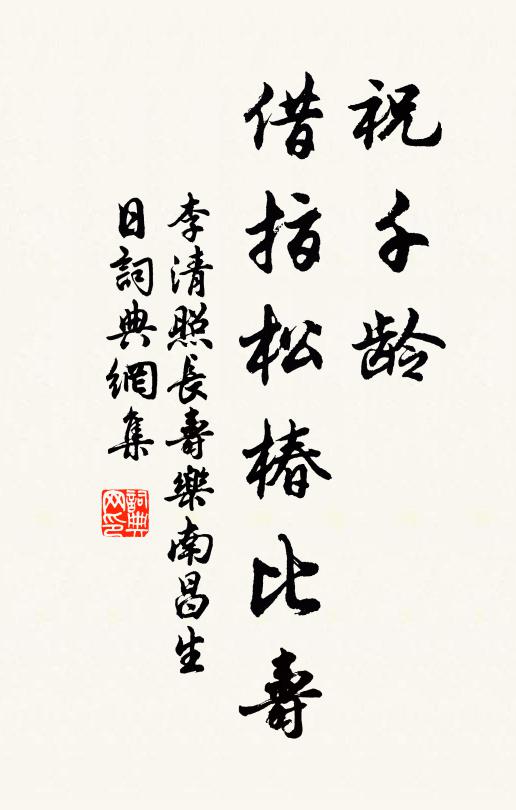 祝千龄
借指松椿比壽
李清照長壽樂南昌生
日詞典網集
詞典网印